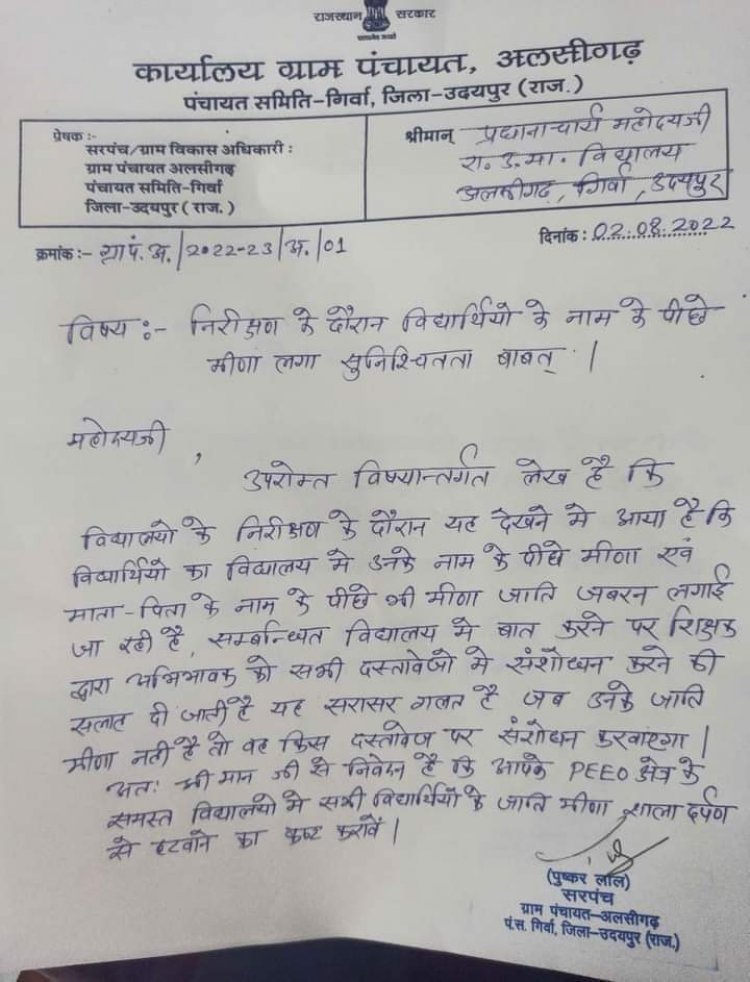 राजस्थान सरकार
कार्यालय ग्राम पंचायत, अलसीगढ़
पंचायत समिति-गिर्वा, जिला-उदयपुर (राज.)
प्रेषक :-
सरपंच/ग्राम विकास अधिकारी :
ग्राम पंचायत अलसीगढ़
पंचायत समिति-गिर्वा
जिला-उदयपुर ( राज. )
श्रीमान् प्रधानाचार्य महोदयजी
रा. उ. मा. विद्यालय
अलसीगढ़, गिर्वा, उदयपुर
क्रमांक :- ग्रा.पं.अ./2022-23/अ./01
दिनांक : 02.08.2022
विषय :- निरीक्षण के दौरान विद्यार्थियो के नाम के पीछे
मीणा लगा सुनिश्चितता बाबत् ।
महोदयजी ,
उपरोक्त विषयान्तर्गत लेख है कि
विद्यालयो के निरीक्षण के दौरान यह देखने मे आया है कि
विद्यार्थियो का विद्यालय मे उनके नाम के पीछे मीणा एवं
माता-पिता के नाम के पीछे भी मीणा जाति जबरन लगाई
जा रही है, सम्बन्धित विद्यालय मे बात करने पर शिक्षक
द्वारा अभिभावक को सभी दस्तावेजो मे संशोधन करने की
सलाह दी जाती है यह सरासर गलत है जब उनके जाति
मीणा नही है तो वह किस दस्तावेज पर संशोधन करवाएगा |
अतः श्री मान जी से निवेदन है कि आपके PEEO क्षेत्र के
समस्त विद्यालयो मे सभी विद्यार्थियो के जाति मीणा शाला दर्पण
से हटवाने का कष्ट करावें |
(पुष्कर लाल)
सरपंच
ग्राम पंचायत-अलसीगढ़
पं.स. गिर्वा, जिला-उदयपुर (राज.)